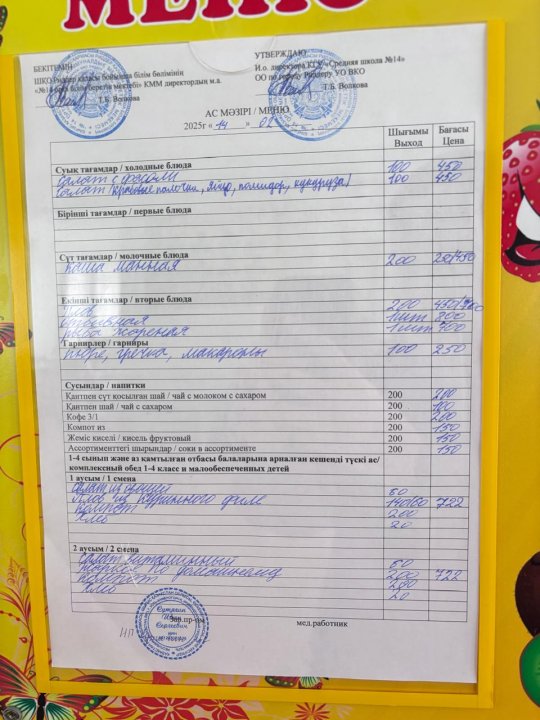 МЕНЮ
БЕКІТЕМІН
ШҚО Риддер қаласы бойынша білім бөлімінің
«№14 орта білім беретін мектебі» КММ директордың м.а.
Т.Б. Волкова
УТВЕРЖДАЮ
И.о. директора КГУ «Средняя школа №14»
ОО по городу Риддеру УО ВКО
Т.Б. Волкова
АС МӘЗІРІ / МЕНЮ
2025г « 14 » 02
Шығымы Выход Бағасы Цена
Суық тағамдар / холодные блюда
Салат с фасоли 100 450
Салат /крабовые палочки, яйцо, помидор, кукуруза/ 100 450
Бірінші тағамдар / первые блюда
Сүт тағамдар / молочные блюда
Каша манная 200
Екінші тағамдар / вторые блюда
Плов 200
1шт 200
Рыба жареная 1шт 700
Гарнирлер / гарниры
Пюре, гречка, макароны 100 250
Сусындар / напитки
Қантпен сүт қосылған шай / чай с молоком с сахаром 200 200
Қантпен шай / чай с сахаром 200 100
Кофе 3/1 200 200
Компот из 200 150
Жеміс киселі / кисель фруктовый 200 150
Ассортименттегі шырындар / соки в ассортименте 200 150
1-4 сынып және аз қамтылған отбасы балаларына арналған кешенді түскі ас/
комплексный обед 1-4 класс и малообеспеченных детей
1 ауысым / 1 смена
Салат из овощей 60
Плов из куриного филе 140/60 722
Компот 200
Хлеб 20
2 ауысым / 2 смена
Салат витаминный 60
по домашнему 200 722
Компот 200
Хлеб 20
Зав.пр-ом
мед.работник
ИП